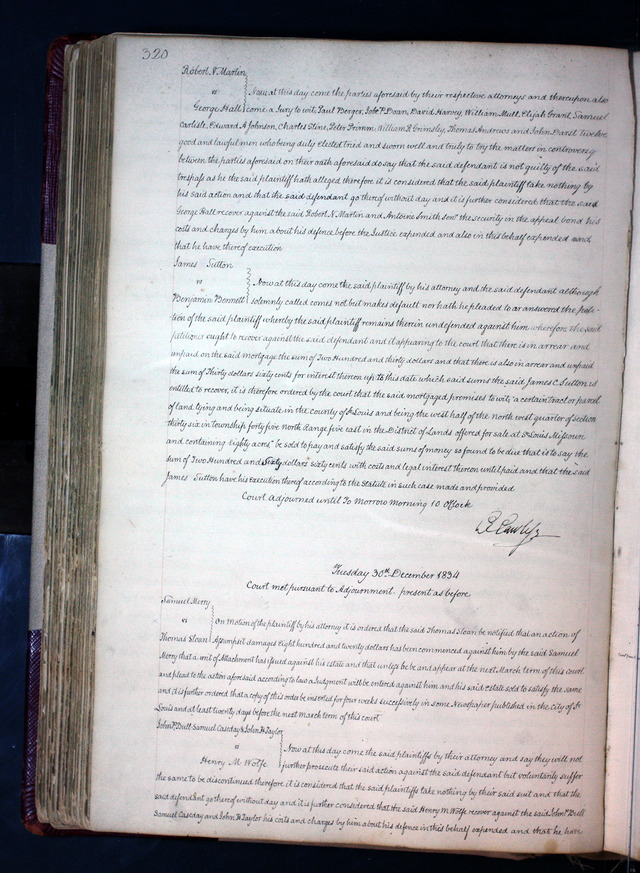 320
Robert N. Martin
vs Now at this day come the parties aforesaid by their respective attorneys and thereupon also
George Hall come a Jury to wit, Paul Berger, John P. Doan, David Harvey, William Mull, Elijah Grant, Samuel
Carlisle, Edward A Johnson, Charles Stine, Peter Primm, William R Grimsley, Thomas Andrews and John Darst Twelve
good and lawful men who being duly elected tried and sworn well and truly to try the matters in controversy
between the parties aforesaid on their oath aforesaid do say that the said defendant is not guilty of the said
trespass as he the said plaintiff hath alleged therefore it is considered that the said plaintiff take nothing by
his said action and that the said defendant go thereof without day and it is further considered that the said
George Hall recover against the said Robert N. Martin and Antoine Smith senr the security in the appeal bond his
costs and charges by him about his defence before the Justice expended and also in this behalf expended and
that he have thereof execution
James Sutton
vs Now at this day come the said plaintiff by his attorney and the said defendant although
Benjamin Bennett solemnly called comes not but makes default nor hath he pleaded to or answered the peti-
tion of the said plaintiff whereby the said plaintiff remains therein undefended against him wherefore the said
petitioner ought to recover against the said defendant and it appearing to the court that there is in arrear and
unpaid on the said mortgage the sum of Two Hundred and thirty dollars and that there is also in arrear and unpaid
the sum of Thirty dollars sixty cents for interest thereon up to this date which said sums the said James C. Sutton is
entitled to recover, it is therefore ordered by the court that the said mortgaged premises to wit, "a certain tract or parcel
of land lying and being situate in the county of St Louis and being the west half of the north west quarter of section
thirty six in Township forty five north Range five east in the District of Lands offered for sale at St Louis Missouri
and containing eighty acres" be sold to pay and satisfy the said sums of money so found to be due that is to say the
sum of Two Hundred and Sixty dollars sixty cents with costs and legal interest thereon until paid and that the said
James Sutton have his execution thereof according to the statute in such case made and provided
Court adjourned until To Morrow Morning 10 O'Clock
Tuesday 30th December 1834
Court met pursuant to Adjournment present as before
Samuel Merry
vs On motion of the plaintiff by his attorney it is ordered that the said Thomas Sloan be notified that an action of
Thomas Sloan Assumpsit damages Eight hundred and twenty dollars has been commenced against him by the said Samuel
Merry that a writ of Attachment has issued against his estate and that unless he be and appear at the next March term of this court
and plead to the action aforesaid according to law a Judgment will be entered against him and his said estate sold to satisfy the same
and it is further ordered that a copy of this order be inserted for four weeks successively in some Newspaper published in the City of St
Louis and at least twenty days before the next march term of this court
John P. Bull Samuel Caseday & John H Taylor
vs Now at this day come the said plaintiffs by their attorney and say they will not
Henry M. Wolfe further prosecute their said action against the said defendant but voluntarily suffer
the same to be discontinued therefore, it is considered that the said plaintiffs take nothing by their said suit and that the
said defendant go thereof without day and it is further considered that the said Henry M. Wolfe recover against the said John P. Bull
Samuel Caseday and John H Taylor his costs and charges by him about his defence in this behalf expended and that he have